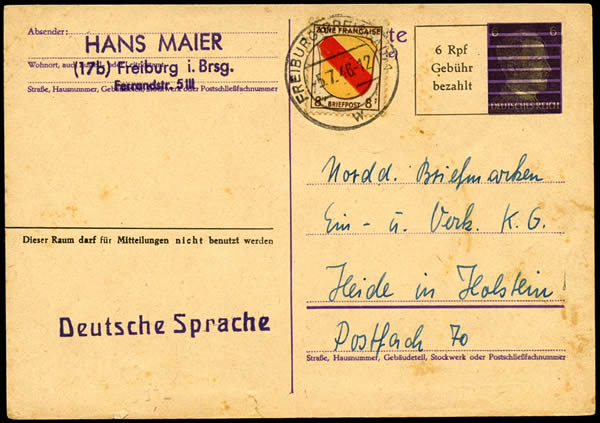 Absender:
HANS MAIER
Wohnort, auch
(17b) Freiburg i. Brsg.
Ferrandstr. 5 III
Straße, Hausnummer, Gebäudeteil, Stockwerk oder Postschließfachnummer
ZONE FRANÇAISE
8 BRIEFPOST 8
FREIBURG
5.7.46-12
te
6 Rpf
Gebühr
bezahlt
6 6
DEUTSCHES REICH
Nordd. Briefmarken
Ein- u. Verk. K. G.
Heide in Holstein
Postfach 70
Straße, Hausnummer, Gebäudeteil, Stockwerk oder Postschließfachnummer
Dieser Raum darf für Mitteilungen nicht benutzt werden
Deutsche Sprache